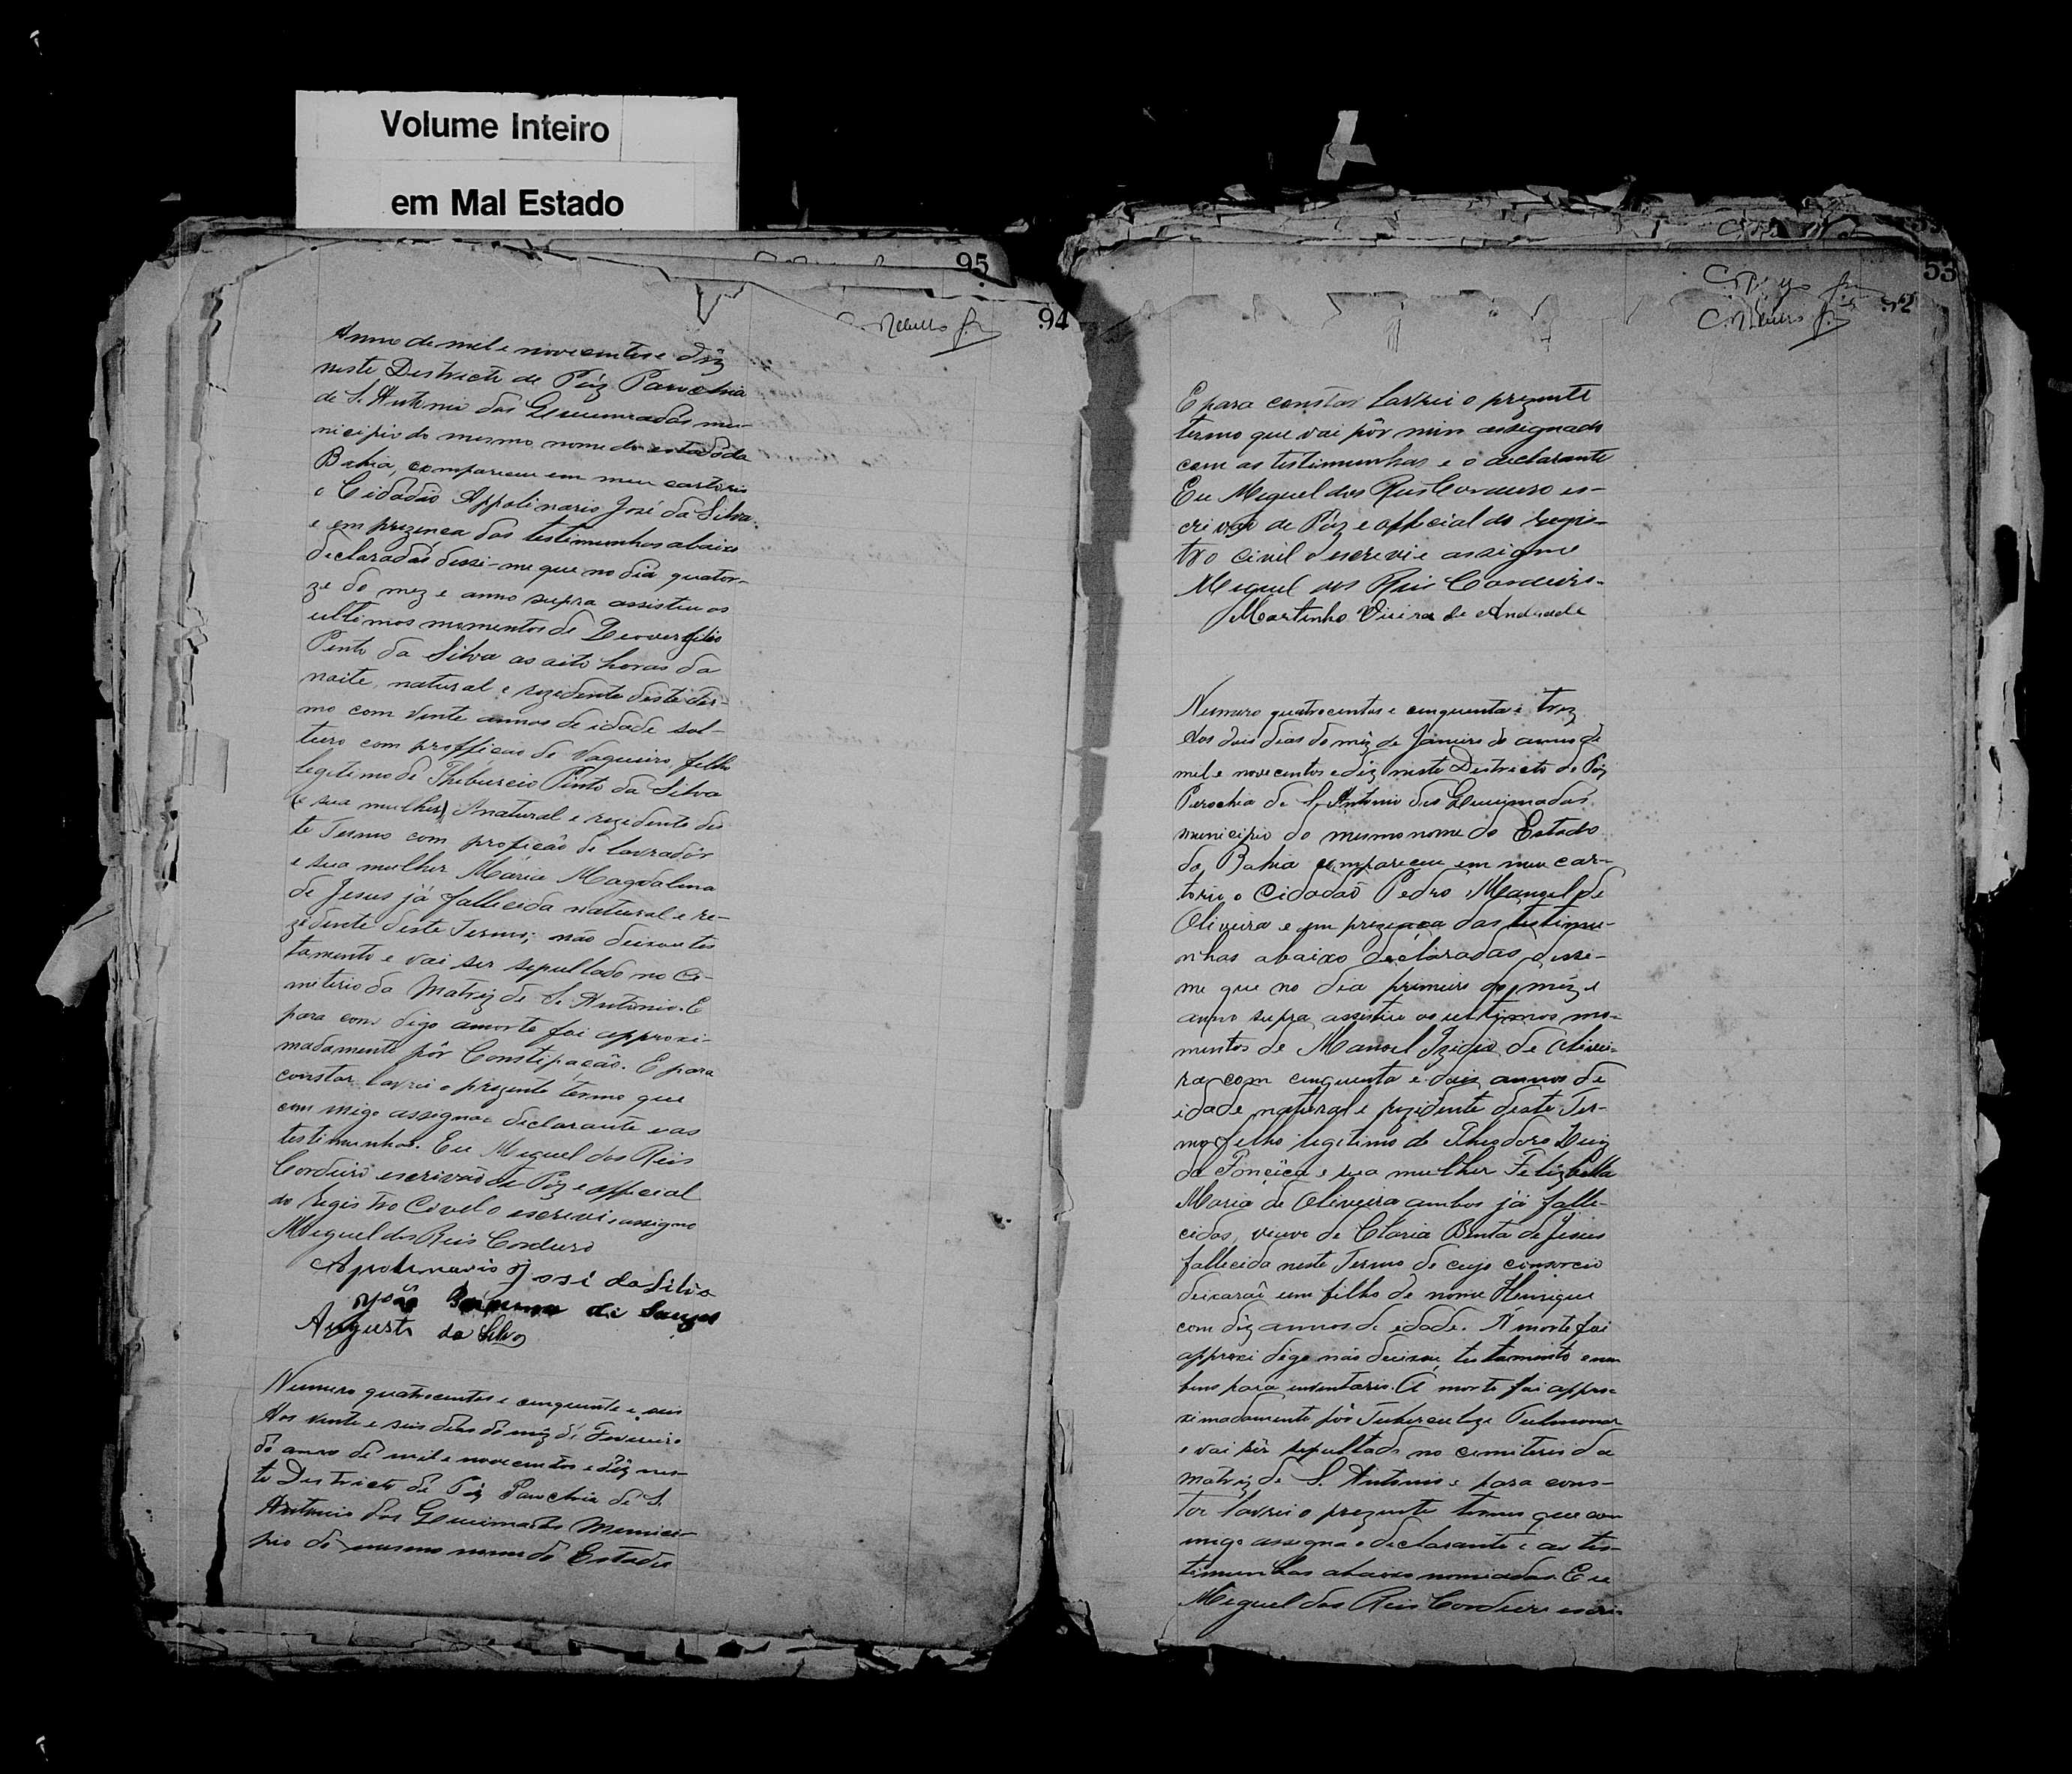 Volume Inteiro
em Mal Estado
95
94
Anno de mel e novecentos e déz
neste Districto de Páz Parochia
de S. Antonio das Queimadas mu-
nicipio do mesmo nome do estado da
Bahia, compareceu em meu cartorio
o Cidadão Appolinario José da Silva
e em prezença das testimunhas abaixo
declaradas disse-me que no dia quator-
ze do mez e anno supra assistiu os
ultimos momentos de
Pinto da Silva as oito horas da
noite, natural e rezidente deste ter-
mo com vinte annos de idade sol-
teiro com proffição de Vaqueiro, filho
legitimo de Thiburcio Pinto da Silva
(e sua mulher) natural e rezidente des
te Termo com profição de lavrador
e sua mulher Maria Magdalena
de Jesus já fallecida natural e re-
zidente deste Termo; não deixou tes
tamento e vai ser sepultado no Ce-
miterio da Matriz de S. Antonio. E
para cons digo a morte foi approxi-
madamente pôr Constipação. E para
constar lavrei o prezente termo que
com migo assigna o declarante e as
testimunhas. Eu Miguel dos Reis
Cordeiro escrivão de Páz e official
do Registro Civel o escrevi e assigno
Miguel dos Reis Cordeiro
Apolinario José da Silva
João de Souza
Augusto da Silva
Numero quatrocentos e cinquenta e seis
Aos vinte e seis dias do mêz de Fevereiro
do anno de mil e novecentos e déz nes-
te Districto de Páz Parochia de S.
Antonio das Queimadas Munici-
pio do mesmo nome do Estado
53
92
E para constar lavrei o prezente
termo que vai pôr mim assignado
com as testimunhas e o declarante
Eu Miguel dos Reis Cordeiro es-
crivão de Páz e official do regis-
tro civil o escrevi e assigno
Miguel dos Reis Cordeiro-
Martinho Vieira de Andrade
Numero quatrocentos e cinquenta e trez
Aos dois dias do mêz de Janeiro do anno de
mel e novecentos e déz neste Districto de Páz
Parochia de S. Antonio das Queimadas
municipio do mesmo nome do Estado
da Bahia compareceu em meu car-
torio o Cidadão Pedro Manoel de
Oliveira e em prezença das testimu-
nhas abaixo declaradas disse-
me que no dia primeiro do mêz e
anno supra assistiu os ultimos mo-
mentos de Manoel de Olivei-
ra com cinquenta e dois annos de
idade natural e rezidente deste Ter-
mo filho legitimo de Theodoro
da Fonçêca e sua mulher
Maria de Oliveira ambos já falle-
cidos, viuvo de Claria Benta de Jesus
fallecida neste Termo de cujo consorcio
deixarão um filho de nome Henrique
com déz annos de edade. A morte foi
approxi digo não deixou testamento e nem
bens para inventario. A morte foi appro-
ximadamente pôr Tuberculoze Pulmonar
e vai sêr sepultado no cemiterio da
matriz de S. Antonio e para cons-
tar lavrei o prezente termo que com
migo assigna o declarante e as tes-
timunhas abaixo nomiadas. Eu
Miguel dos Reis Cordeiro escri-